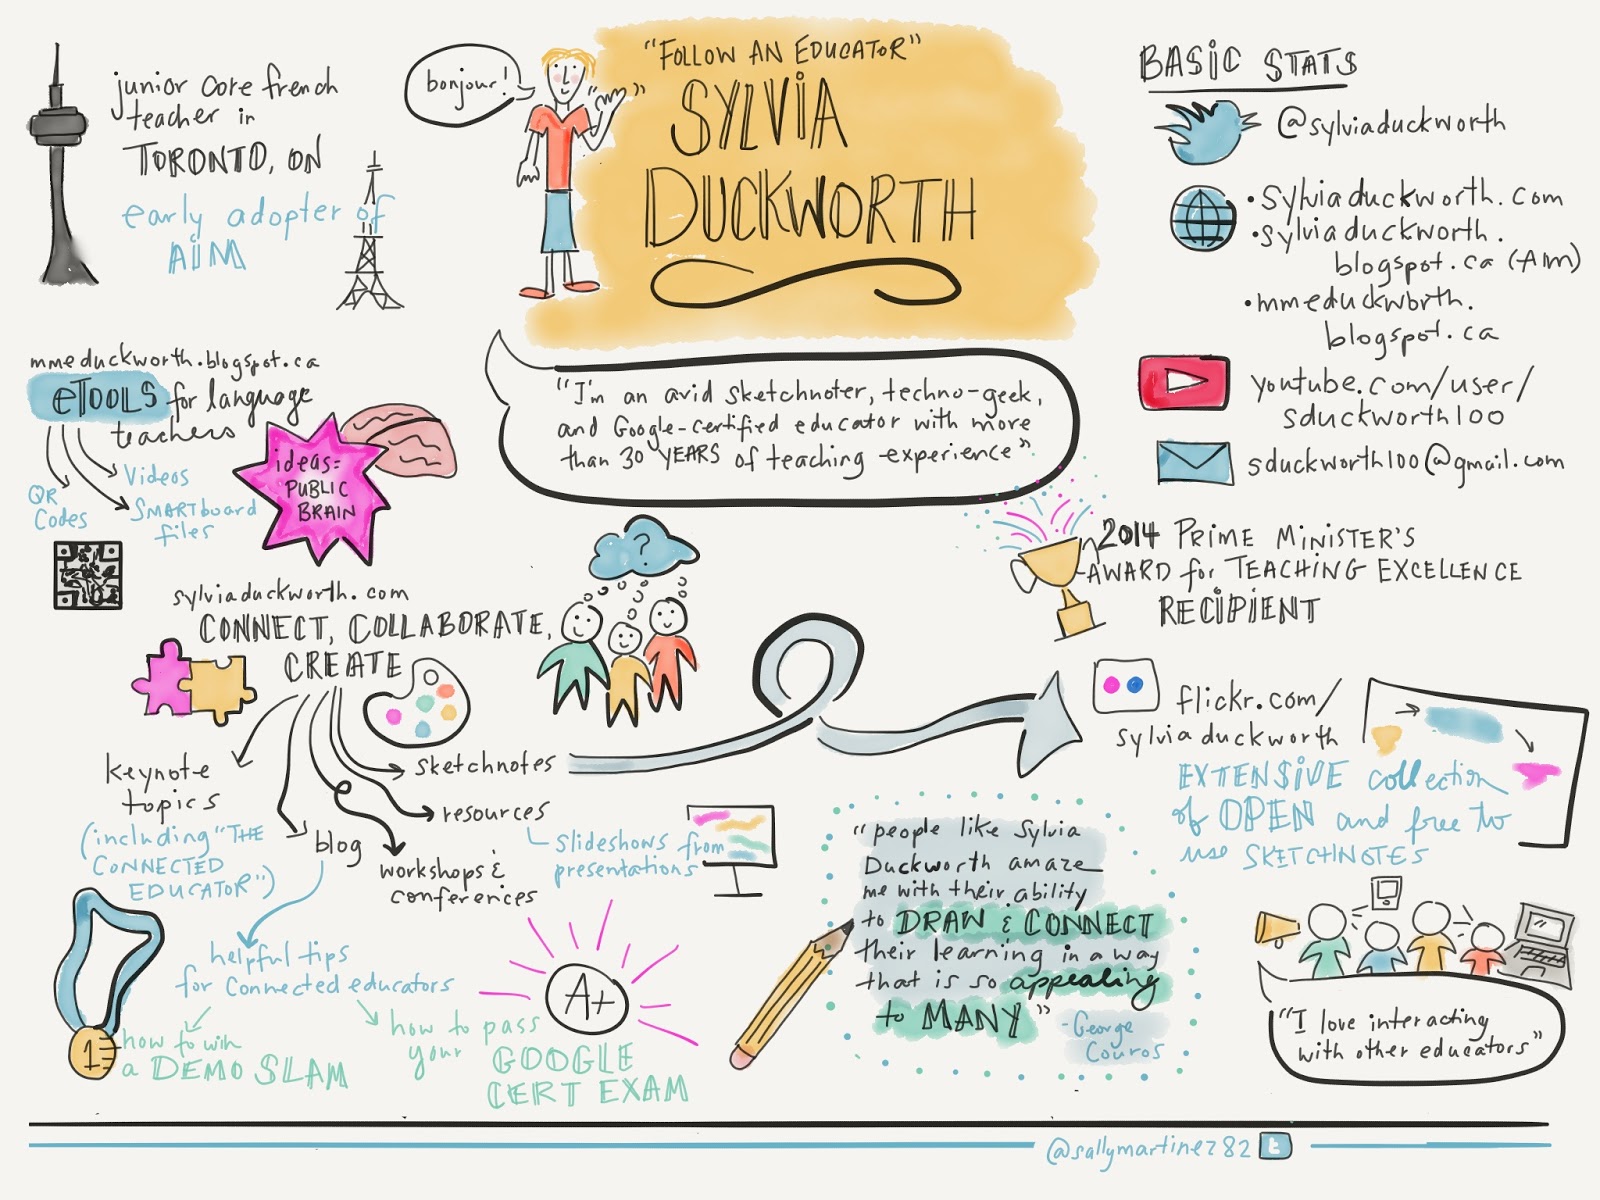 junior core french
teacher in
TORONTO, ON
early adopter of
AIM
bonjour!
"FOLLOW AN EDUCATOR"
SYLVIA
DUCKWORTH
BASIC STATS
@sylviaduckworth
• sylviaduckworth.com
• sylviaduckworth.
blogspot.ca (AIM)
• mmeduckworth.
blogspot.ca
youtube.com/user/
sduckworth100
sduckworth100@gmail.com
mmeduckworth.blogspot.ca
eTOOLS for language
teachers
QR
Codes
Videos
SMARTboard
files
ideas=
PUBLIC
BRAIN
"I'm an avid sketchnoter, techno-geek,
and Google-certified educator with more
than 30 YEARS of teaching experience"
2014 PRIME MINISTER'S
AWARD for TEACHING EXCELLENCE
RECIPIENT
?
sylviaduckworth.com
CONNECT, COLLABORATE,
CREATE
keynote
topics
(including "THE
CONNECTED
EDUCATOR")
blog
workshops &
conferences
resources
slideshows from
presentations
sketchnotes
flickr.com/
sylviaduckworth
EXTENSIVE collection
of OPEN and free to
use SKETCHNOTES
helpful tips
for connected educators
1
how to win
a DEMO SLAM
how to pass
your GOOGLE
CERT EXAM
A+
"people like Sylvia
Duckworth amaze
me with their ability
to DRAW & CONNECT
their learning in a way
that is so appealing
to MANY"
-George
Couros
"I love interacting
with other educators"
@sallymartinez82
t